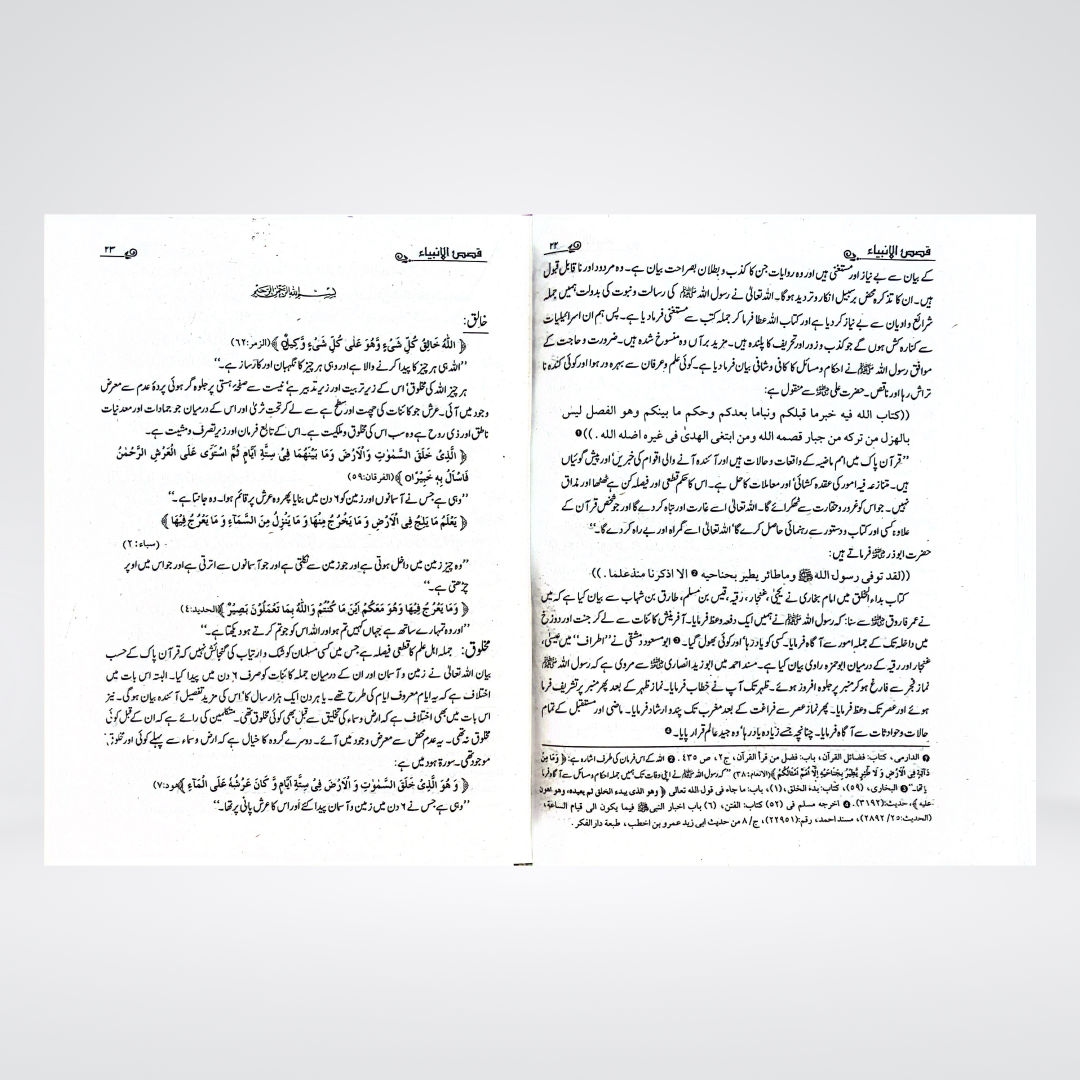 قصص الانبیاء ۲۲
کے بیان سے بے نیاز اور مستغنی ہیں اور وہ روایات جن کا کذب و بطلان بصراحت بیان ہے۔ وہ مردود اور ناقابل قبول
ہیں۔ ان کا تذکرہ محض بر سبیل انکار و تردید ہوگا۔ اللہ تعالیٰ نے رسول اللہ ﷺ کی رسالت و نبوت کی بدولت ہمیں جملہ
شرائع و ادیان سے بے نیاز کر دیا ہے اور کتاب اللہ عطا فرما کر جملہ کتب سے مستغنی فرما دیا ہے۔ پس ہم ان اسرائیلیات
سے کنارہ کش ہوں گے جو کذب و زور اور تحریف کا پلندہ ہیں۔ مزید برآں وہ منسوخ شدہ ہیں۔ ضرورت و حاجت کے
موافق رسول اللہ ﷺ نے احکام و مسائل کا کافی و شافی بیان فرما دیا ہے۔ کوئی علم و عرفان سے بہرہ ور ہوا اور کوئی کندہ نا
تراش رہا اور ناقص۔ حضرت علی ؓ سے منقول ہے:
((کتاب الله فیه خبر ما قبلکم ونبا ما بعدکم وحکم ما بینکم وهو الفصل لیس
بالهزل من ترکه من جبار قصمه الله ومن ابتغی الهدیٰ فی غیره اضله الله۔)) ❶
’’قرآن پاک میں امم ماضیہ کے واقعات و حالات ہیں اور آئندہ آنے والی اقوام کی خبریں اور پیش گوئیاں
ہیں۔ متنازعہ فیہ امور کی عقدہ کشائی اور معاملات کا حل ہے۔ اس کا حکم قطعی اور فیصلہ کن ہے ٹھٹھا اور مذاق
نہیں۔ جو اس کو غرور و حقارت سے ٹھکرائے گا۔ اللہ تعالیٰ اسے غارت اور تباہ کر دے گا اور جو شخص قرآن کے
علاوہ کسی اور کتاب و دستور سے رہنمائی حاصل کرے گا‘ اللہ تعالیٰ اسے گمراہ اور بے راہ کر دے گا۔‘‘
حضرت ابوذر ؓ فرماتے ہیں:
((لقد توفی رسول الله ﷺ وما طائر یطیر بجناحیه ❷ الا اذکرنا منذ علما۔))
کتاب بداء الخلق میں امام بخاری نے یحییٰ، غنجار، رقیہ، قیس بن مسلم، طارق بن شہاب سے بیان کیا ہے کہ میں
نے عمر فاروق ؓ سے سنا: کہ رسول اللہ ﷺ نے ہمیں ایک دفعہ وعظ فرمایا۔ آفرینش کائنات سے لے کر جنت اور دوزخ
میں داخلہ تک کے جملہ امور سے آگاہ فرمایا۔ کسی کو یاد رہا اور کوئی بھول گیا۔ ❸ ابو مسعود دمشقی نے ’’اطراف‘‘ میں عیسیٰ،
غنجار اور رقیہ کے درمیان ابو حمزہ راوی بیان کیا ہے۔ مسند احمد میں ابو زید انصاری ؓ سے مروی ہے کہ رسول اللہ ﷺ
نماز فجر سے فارغ ہو کر منبر پر جلوہ افروز ہوئے۔ ظہر تک آپ نے خطاب فرمایا۔ نماز ظہر کے بعد پھر منبر پر تشریف فرما
ہوئے اور عصر تک وعظ فرمایا۔ پھر نماز عصر سے فراغت کے بعد مغرب تک پند و ارشاد فرمایا۔ ماضی اور مستقبل کے تمام
حالات و حوادثات سے آگاہ فرمایا۔ چنانچہ جسے زیادہ یاد رہا وہ جید عالم قرار پایا۔ ❹
❶ الدارمی، کتاب: فضائل القرآن، باب: فضل من قرأ القرآن، ج۲، ص ۴۳۵۔ ❷ اللہ کے اس فرمان کی طرف اشارہ ہے: ﴿وَمَا مِنْ
دَآبَّةٍ فِي الْاَرْضِ وَ لَا طٰٓئِرٍ يَّطِيْرُ بِجَنَاحَيْهِ اِلَّآ اُمَمٌ اَمْثَالُكُمْ﴾ (الانعام: ۳۸) ’’کہ رسول اللہ ﷺ نے اپنی وفات تک ہمیں جملہ احکام و مسائل سے آگاہ فرما
❸ البخاری، (۵۹)، کتاب: بدء الخلق، (۱)، باب: ما جاء فی قول الله تعالی ﴿وهو الذی یبدء الخلق ثم یعیده، وهو اهون
علیه﴾، حدیث: (۳۱۹۲)۔ ❹ اخرجه مسلم فی (۵۲) کتاب: الفتن، (۶) باب اخبار النبی ﷺ فیما یکون الی قیام الساعة،
(الحدیث: ۲۸۹۲/۲۵)، مسند احمد، رقم: (۲۲۹۵۱)، ج/۸ من حدیث ابی زید عمرو بن اخطب، طبعة دار الفکر۔
قصص الانبیاء ۲۳
بِسْمِ اللهِ الرَّحْمٰنِ الرَّحِيْمِ
خالق:
﴿ اَللّٰهُ خَالِقُ كُلِّ شَيْءٍ وَّهُوَ عَلٰى كُلِّ شَيْءٍ وَّكِيْلٌ ﴾ (الزمر: ۶۲)
’’اللہ ہی ہر چیز کا پیدا کرنے والا ہے اور وہی ہر چیز کا نگہبان اور کارساز ہے۔‘‘
ہر چیز اللہ کی مخلوق‘ اس کے زیر تربیت اور زیر تدبیر ہے‘ نیست سے صفحۂ ہستی پر جلوہ گر ہوئی پردۂ عدم سے معرض
وجود میں آئی۔ عرش جو کائنات کی چھت اور سطح ہے سے لے کر تحت ثریٰ اور اس کے درمیان جو جمادات اور معدنیات
ناطق اور ذی روح ہے وہ سب اس کی مخلوق و ملکیت ہے۔ اس کے تابع فرمان اور زیر تصرف و مشیت ہے۔
﴿ الَّذِيْ خَلَقَ السَّمٰوٰتِ وَالْاَرْضَ وَمَا بَيْنَهُمَا فِيْ سِتَّةِ اَيَّامٍ ثُمَّ اسْتَوٰى عَلَى الْعَرْشِ الرَّحْمٰنُ
فَاسْاَلْ بِهٖ خَبِيْرًا٥ ﴾ (الفرقان: ۵۹)
’’وہی ہے جس نے آسمانوں اور زمین کو ۶ دن میں بنایا پھر وہ عرش پر قائم ہوا۔ وہ جانتا ہے۔‘‘
﴿ يَعْلَمُ مَا يَلِجُ فِي الْاَرْضِ وَمَا يَخْرُجُ مِنْهَا وَمَا يَنْزِلُ مِنَ السَّمَآءِ وَمَا يَعْرُجُ فِيْهَا ﴾
(سباء: ۲)
’’وہ چیز زمین میں داخل ہوتی ہے اور جو زمین سے نکلتی ہے اور جو آسمانوں سے اترتی ہے اور جو اس میں اوپر
چڑھتی ہے۔‘‘
﴿ وَمَا يَعْرُجُ فِيْهَا وَهُوَ مَعَكُمْ اَيْنَ مَا كُنْتُمْ وَاللّٰهُ بِمَا تَعْمَلُوْنَ بَصِيْرٌ ﴾ (الحدید: ۴)
’’اور وہ تمہارے ساتھ ہے جہاں کہیں تم ہو اور اللہ اس کو جو تم کرتے ہو دیکھتا ہے۔‘‘
مخلوق: جملہ اہل علم کا قطعی فیصلہ ہے جس میں کسی مسلمان کو شک و ارتیاب کی گنجائش نہیں کہ قرآن پاک کے حسب
بیان اللہ تعالیٰ نے زمین و آسمان اور ان کے درمیان جملہ کائنات کو صرف ۶ دن میں پیدا کیا۔ البتہ اس بات میں
اختلاف ہے کہ یہ ایام معروف ایام کی طرح تھے۔ یا ہر دن ایک ہزار سال کا‘ اس کی مزید تفصیل آئندہ بیان ہوگی۔ نیز
اس بات میں بھی اختلاف ہے کہ ارض و سماء کی تخلیق سے قبل بھی کوئی مخلوق تھی۔ متکلمین کی رائے ہے کہ ان کے قبل کوئی
مخلوق نہ تھی۔ یہ عدم محض سے معرض وجود میں آئے۔ دوسرے گروہ کا خیال ہے کہ ارض و سماء سے پہلے کوئی اور مخلوق
موجود تھی۔ سورۃ ہود میں ہے:
﴿ وَ هُوَ الَّذِيْ خَلَقَ السَّمٰوٰتِ وَ الْاَرْضَ فِيْ سِتَّةِ اَيَّامٍ وَّ كَانَ عَرْشُهٗ عَلَى الْمَآءِ ﴾ (ہود: ۷)
’’وہی ہے جس نے ۶ دن میں زمین و آسمان پیدا کئے اور اس کا عرش پانی پر تھا۔‘‘